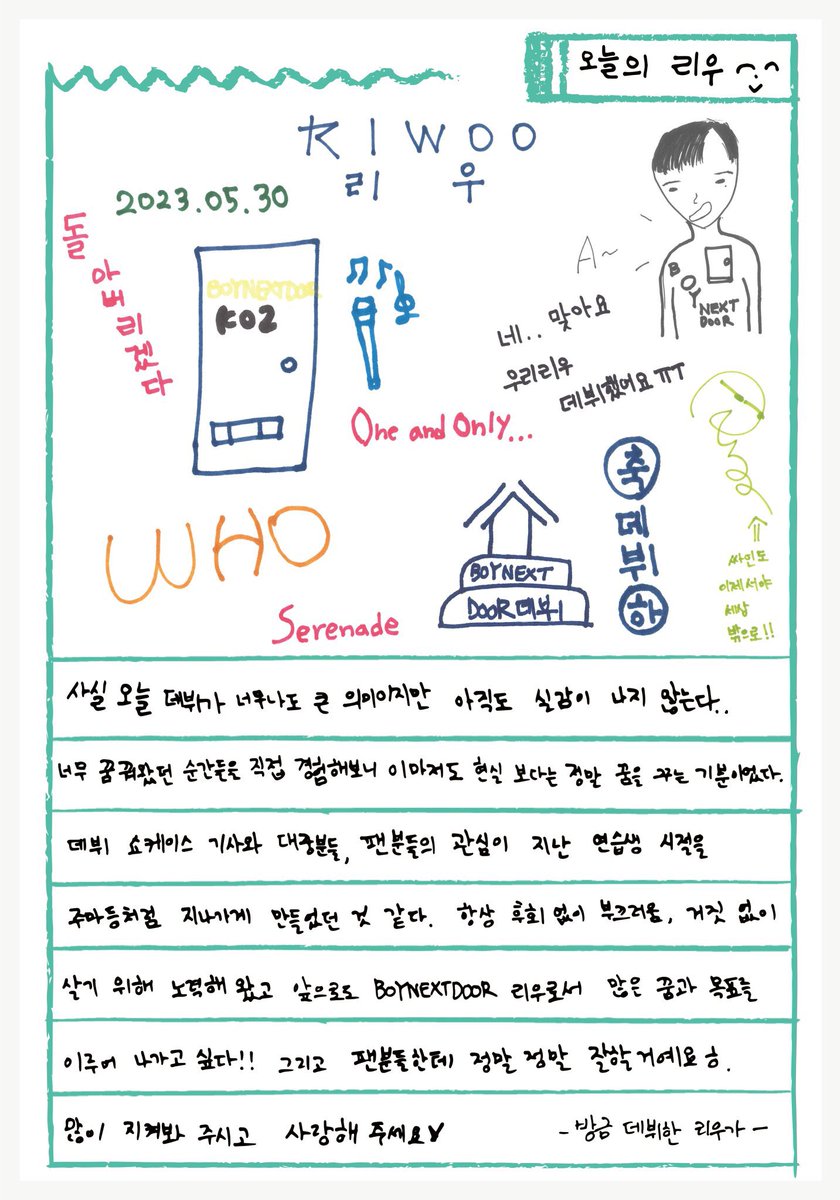 오늘의 리우
RIWOO
리 우
2023.05.30
돌아버리겠다
BOYNEXTDOOR
KOZ
A~
B
O
Y
NEXT
DOOR
네.. 맞아요
우리리우
데뷔했어요 ㅠㅠ
One and Only...
WHO
Serenade
BOYNEXT
DOOR 데뷔
축
데
뷔
하
싸인도
이제서야
세상
밖으로!!
사실 오늘 데뷔가 너무나도 큰 의미이지만 아직도 실감이 나지 않는다..
너무 꿈꿔왔던 순간들을 직접 경험해보니 이마저도 현실 보다는 정말 꿈을 꾸는 기분이었다.
데뷔 쇼케이스 기사와 대중분들, 팬분들의 관심이 지난 연습생 시절을
주마등처럼 지나가게 만들었던 것 같다. 항상 후회 없이 부끄러움, 거짓 없이
살기 위해 노력해 왔고 앞으로도 BOYNEXTDOOR 리우로서 많은 꿈과 목표를
이루어 나가고 싶다!! 그리고 팬분들한테 정말 정말 잘할거예요 ㅎ.
많이 지켜봐 주시고 사랑해 주세요♥
- 방금 데뷔한 리우가 -